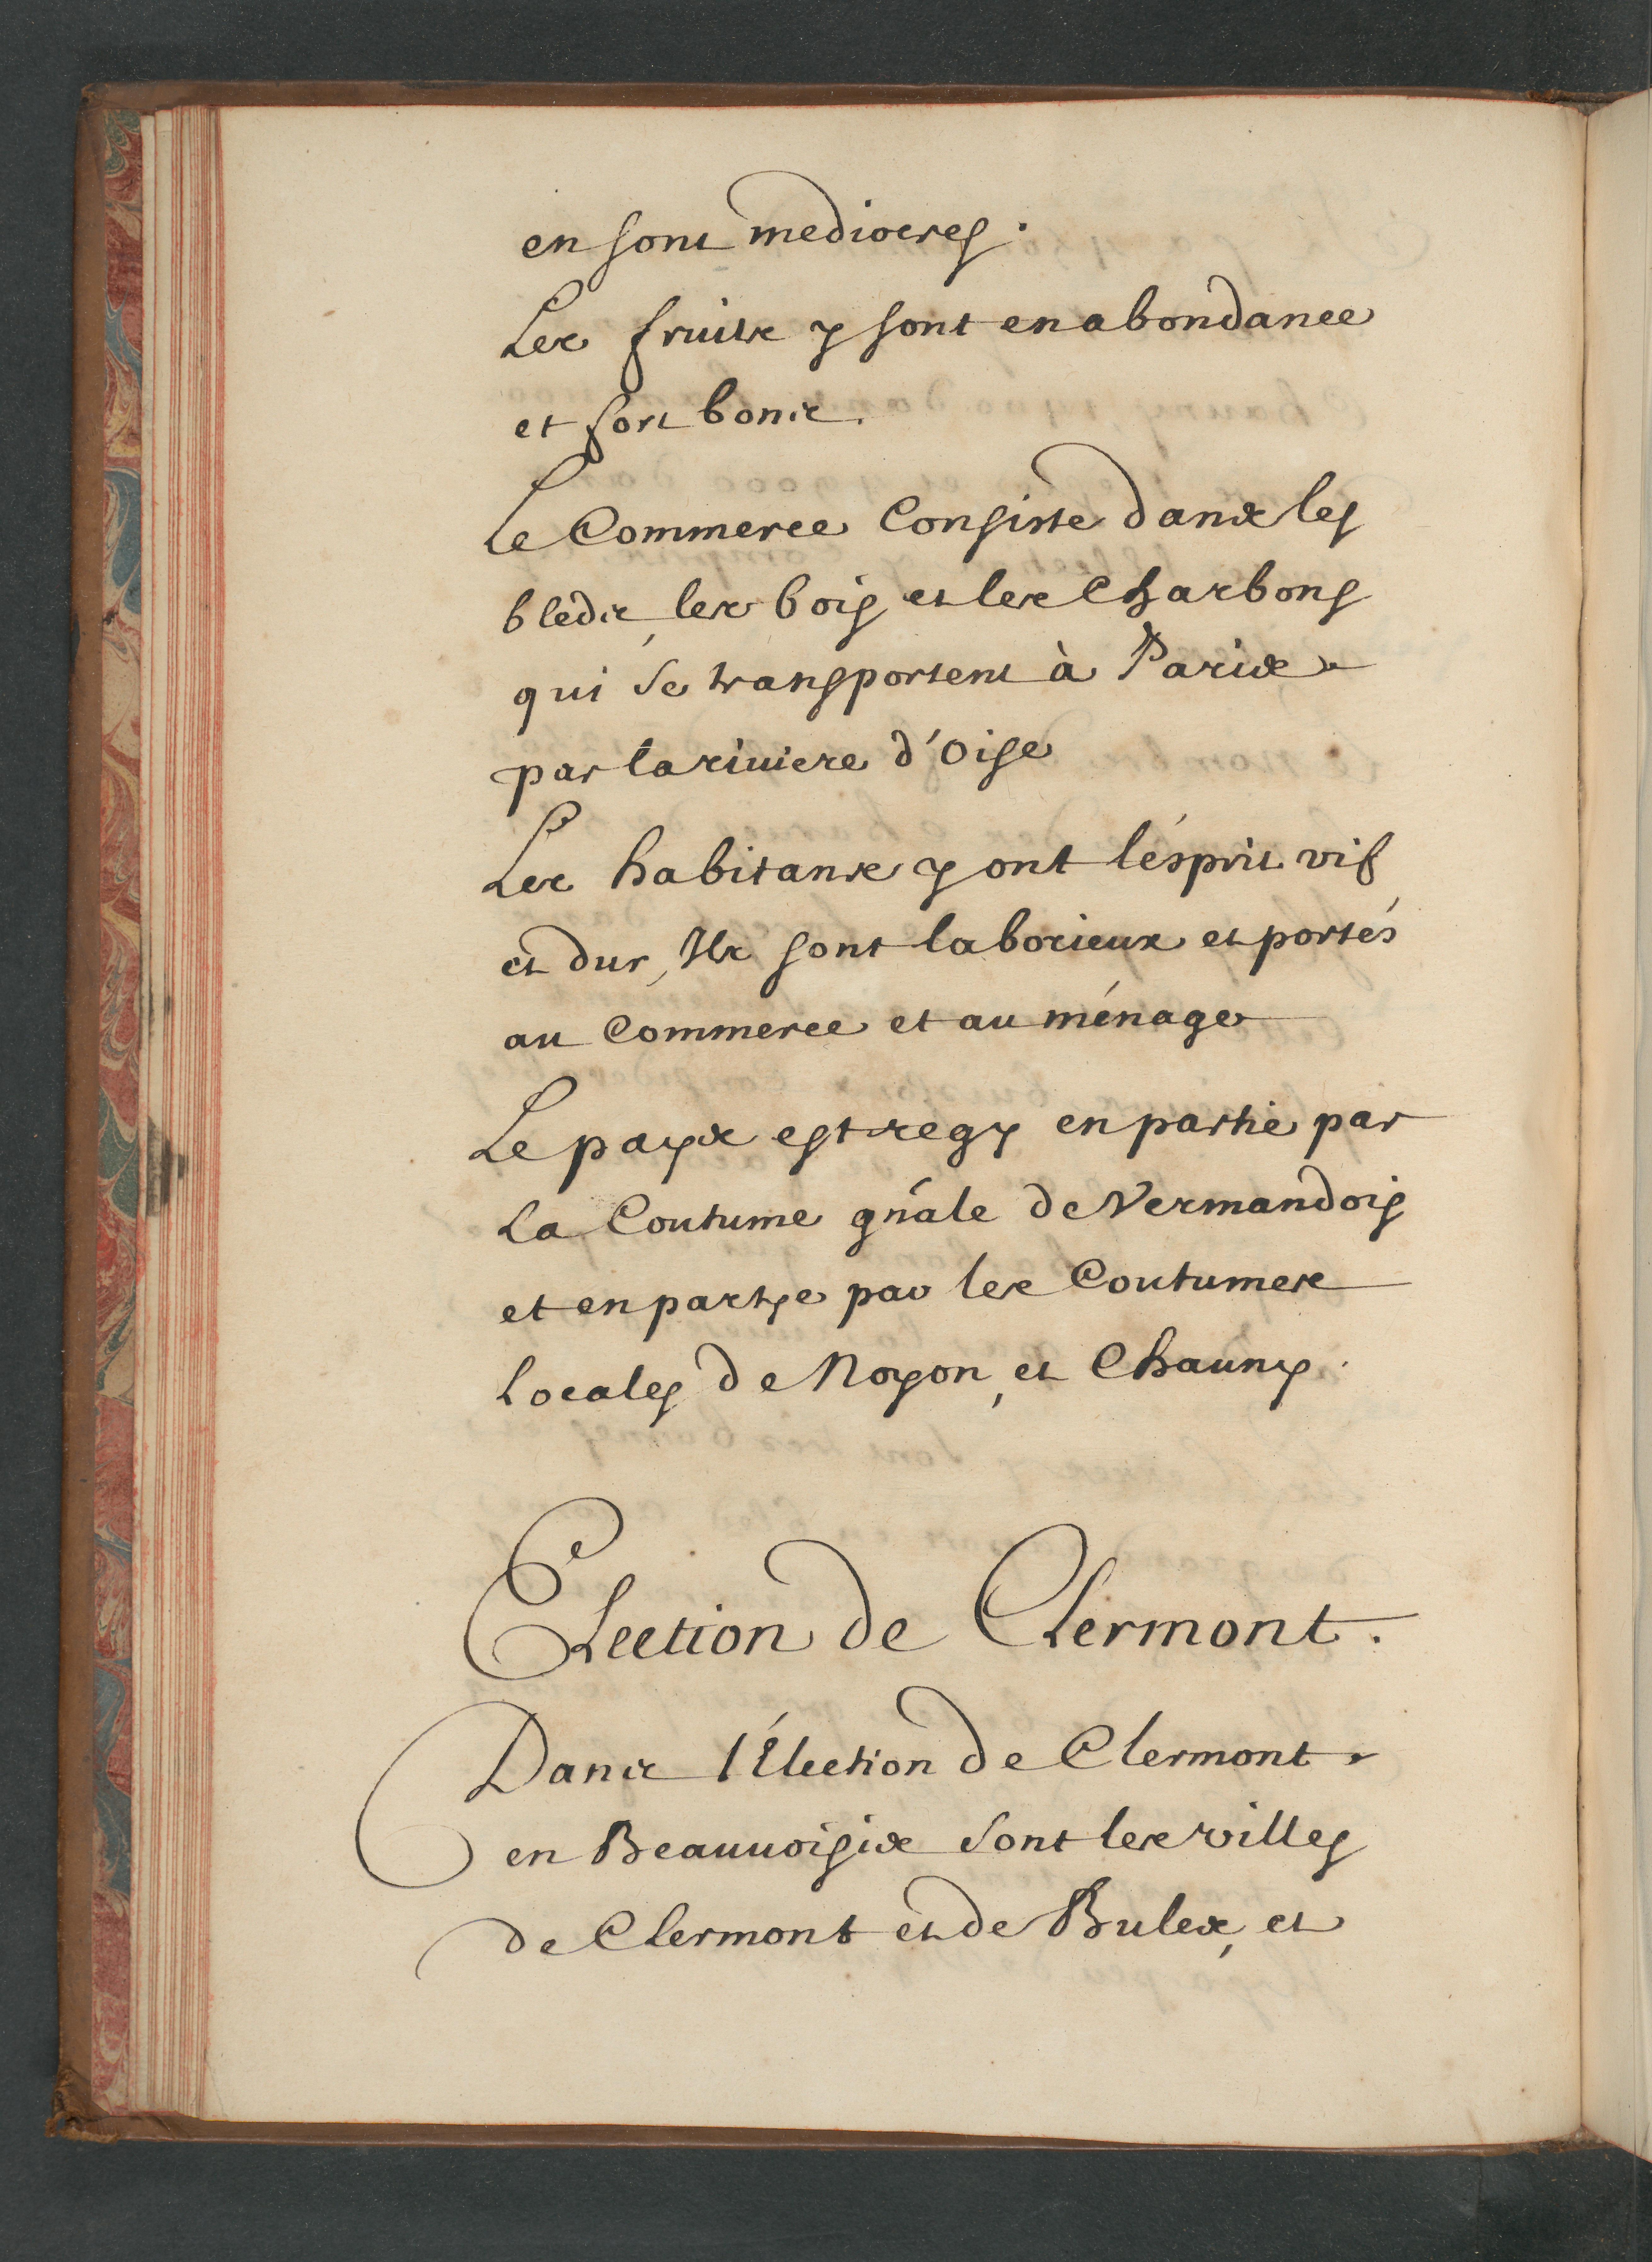 en sont mediocres.
Les fruits y sont en abondance
et fort bons.
Le Commerce Consiste dans les
bleds, les bois et les Charbons
qui se transportent à Paris
par la riuiere d'Oise
Les habitans y ont l'ésprit vif
et dur, Ils sont laborieux et portés
au Commerce et au ménage
Le pays est regy en partie par
La Coutume gñale de Vermandois
et en partye par les Coutumes
Locales de Noyon, et Chauny.
Election de Clermont.
Dans l'Élection de Clermont
en Beauuoisis sont les villes
de Clermont et de Bules, et